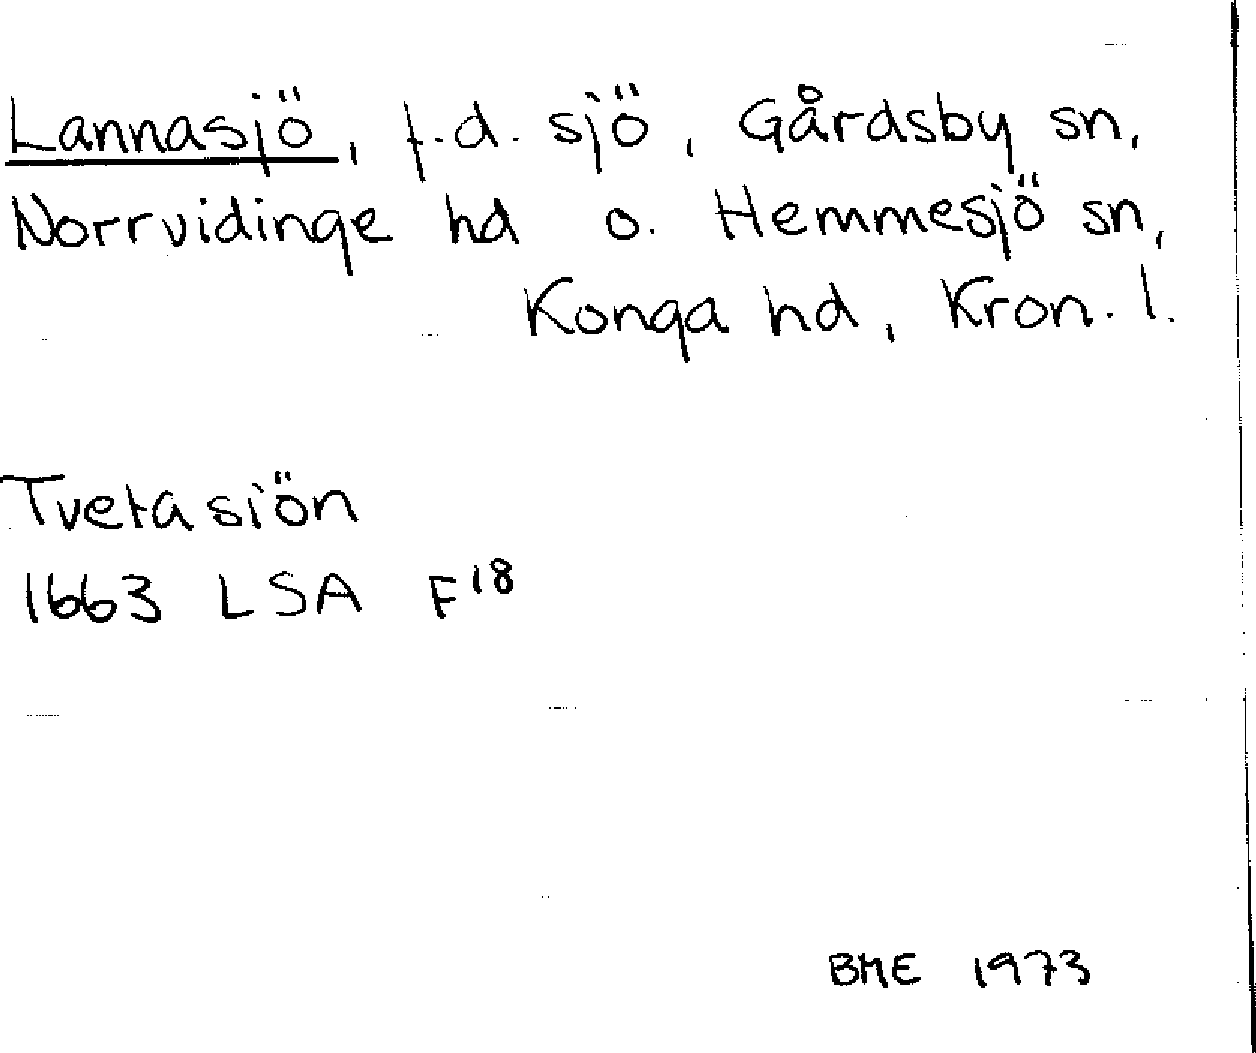 Lannasjö, f.d. sjö, Gårdsby sn,
Norrvidinge hd o. Hemmesjö sn,
Konga hd, Kron. l.
Tveta siön
1663 LSA F18
BME 1973